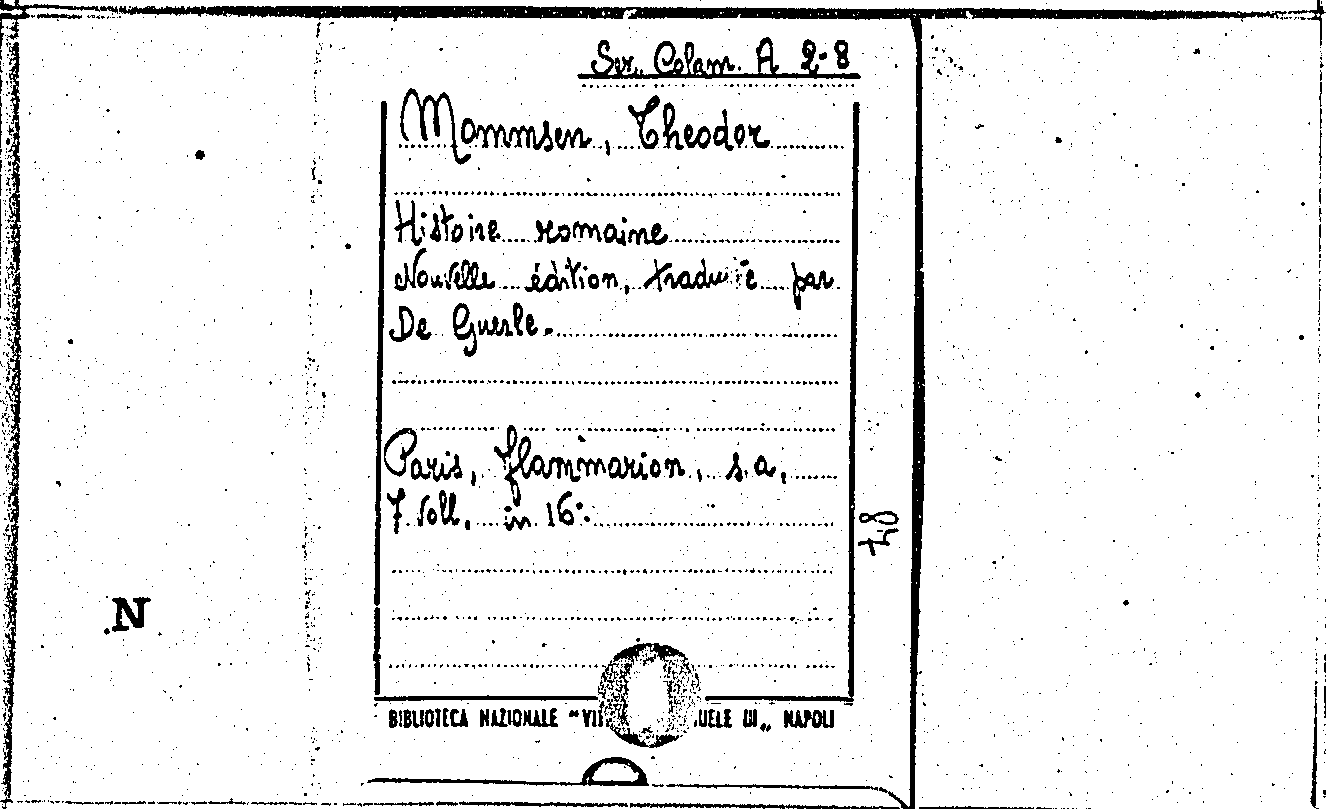 Ser. Colam. A 2-8
Mommsen, Theodor
Histoire romaine
Nouvelle édition, traduite par
De Guerle.
Paris, Flammarion, s.a,
7 voll. in 16º.
84
N
BIBLIOTECA NAZIONALE "VIT UELE III„ NAPOLI